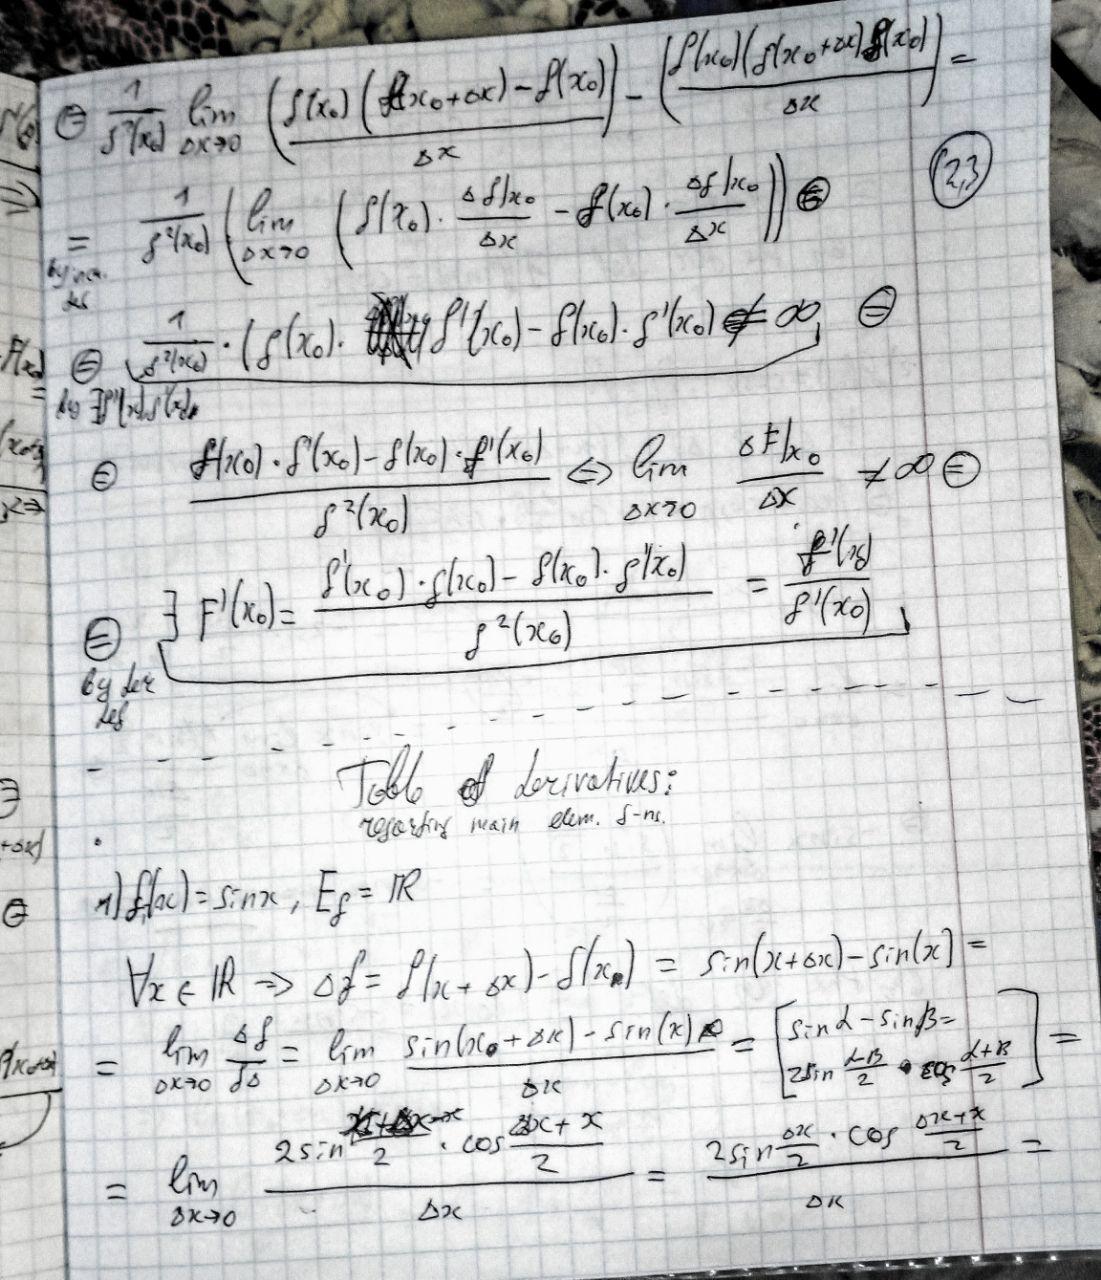 ⊜ 1/g²(x₀) lim Δx→0 (g(x₀)(f(x₀+Δx)-f(x₀))/Δx) - (f(x₀)(g(x₀+Δx)g(x₀))/Δx) =
(2,3)
= 1/g²(x₀) (lim Δx→0 (g(x₀)·Δf|x₀/Δx - f(x₀)·Δg|x₀/Δx)) ⊜
⊜ 1/g²(x₀)·(g(x₀)· f'(x₀)-f(x₀)·g'(x₀) ≠ ∞ ⊜
by ∃
⊜ f(x₀)·g'(x₀)-g(x₀)·f'(x₀)/g²(x₀) ⇔ lim Δx→0 ΔF|x₀/Δx ≠ ∞ ⊜
⊜ ∃ F'(x₀) = f'(x₀)·g(x₀)-f(x₀)·g'(x₀)/g²(x₀) = f'(x₀)/g'(x₀)
by der
def
Table of derivatives:
regarding main elem. f-ns.
1) f(x) = sinx, E_f = ℝ
∀x ∈ ℝ ⇒ Δf = f(x+Δx)-f(x) = sin(x+Δx)-sin(x) =
= lim Δx→0 Δf/δΔ = lim Δx→0 sin(x+Δx)-sin(x)/Δx = [sinα-sinβ= 2sin α-β/2 · cos α+β/2] =
= lim Δx→0 2sin /2 · cos Δx+x/2 /Δx = 2sin Δx/2 · cos Δx+x/2 /Δx =